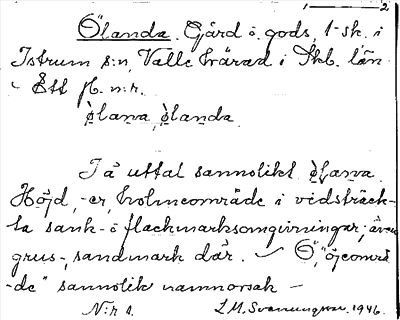 1 — 2
Ölanda. Gård o. gods, 1 sk. i
Istrum s:n, Valle härad i Skb. län
- Ett fl. n:r.
ø̀lana, ø̀landa.
I ä uttal sannolikt ø̀lana.
Höjd, -er, holmeområde i vidsträck-
ta sank- o flackmarksomgivningar; även
grus-, sandmark där. - "Ö, "öjeområ
-de" sannolik namnorsak -
N:r 1. L.M. Svanungsson. 1946.